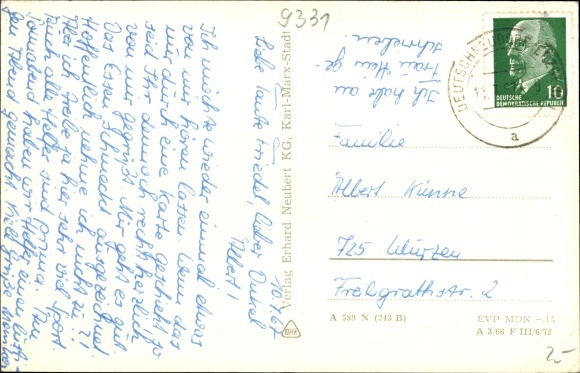 9331
10.7.67
Liebe Tante Friedel, lieber Onkel
Albert!
Ich möchte wieder einmal etwas
von mir hören lassen. Wenn das
nur durch eine Karte geschieht, so
seid Ihr dennoch recht herzlich
von mir gegrüßt. Mir geht es gut.
Das Essen schmeckt ausgezeichnet.
Hoffentlich nehme ich nicht zu?!
Hier ich treibe ja hier sehr viel Sport
auch alle Helfer sind prima. Am
Sonnabend haben wir Helfer einen
gen Abend gemacht. Viele Grüße Monika
Ich habe an
Frau Heu ge-
schrieben.
Verlag Erhard Neubert KG, Karl-Marx-Stadt
DEUTSCHNEUDORF
a
DEUTSCHE
DEMOKRATISCHE REPUBLIK
10
Familie
Albert Künne
725 Wurzen
Freiligrathstr. 2
A 589 N (243 B)
EVP MDN -.15
A 3/66 F III/6/75
2,-